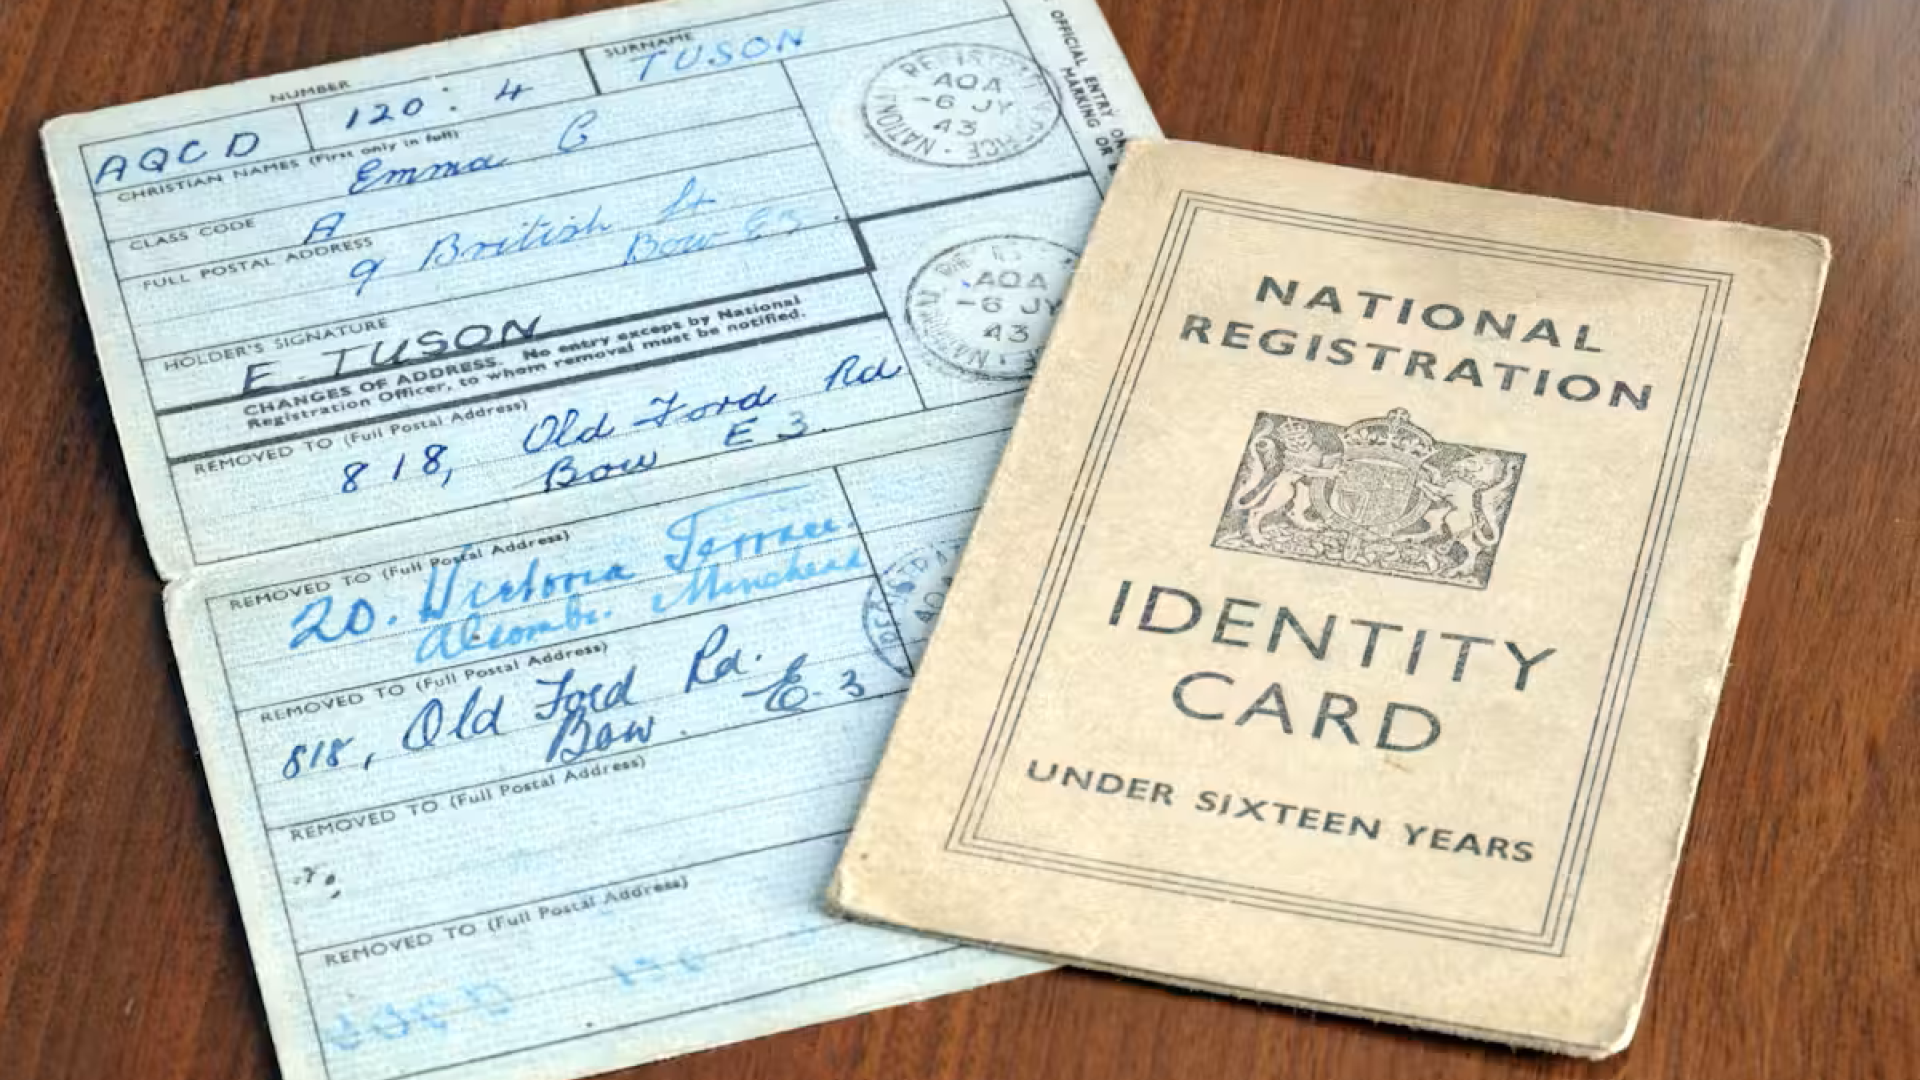 NUMBER
SURNAME
AQCD 120 : 4 TUSON
CHRISTIAN NAMES (First only in full)
Emma C
CLASS CODE
A
FULL POSTAL ADDRESS
9 British St
Bow E3
HOLDER'S SIGNATURE
E. TUSON
CHANGES OF ADDRESS. No entry except by National
Registration Officer, to whom removal must be notified.
REMOVED TO (Full Postal Address)
818, Old Ford Rd
Bow E 3.
REMOVED TO (Full Postal Address)
20. Victoria Terrace.
Alcombe. Minehead
REMOVED TO (Full Postal Address)
818, Old Ford Rd.
Bow. E. 3
REMOVED TO (Full Postal Address)
REMOVED TO (Full Postal Address)
AQA
-6 JY
43
AQA
-6 JY
43
OFFICIAL ENTRY
MARKING OR
NATIONAL
REGISTRATION
IDENTITY
CARD
UNDER SIXTEEN YEARS